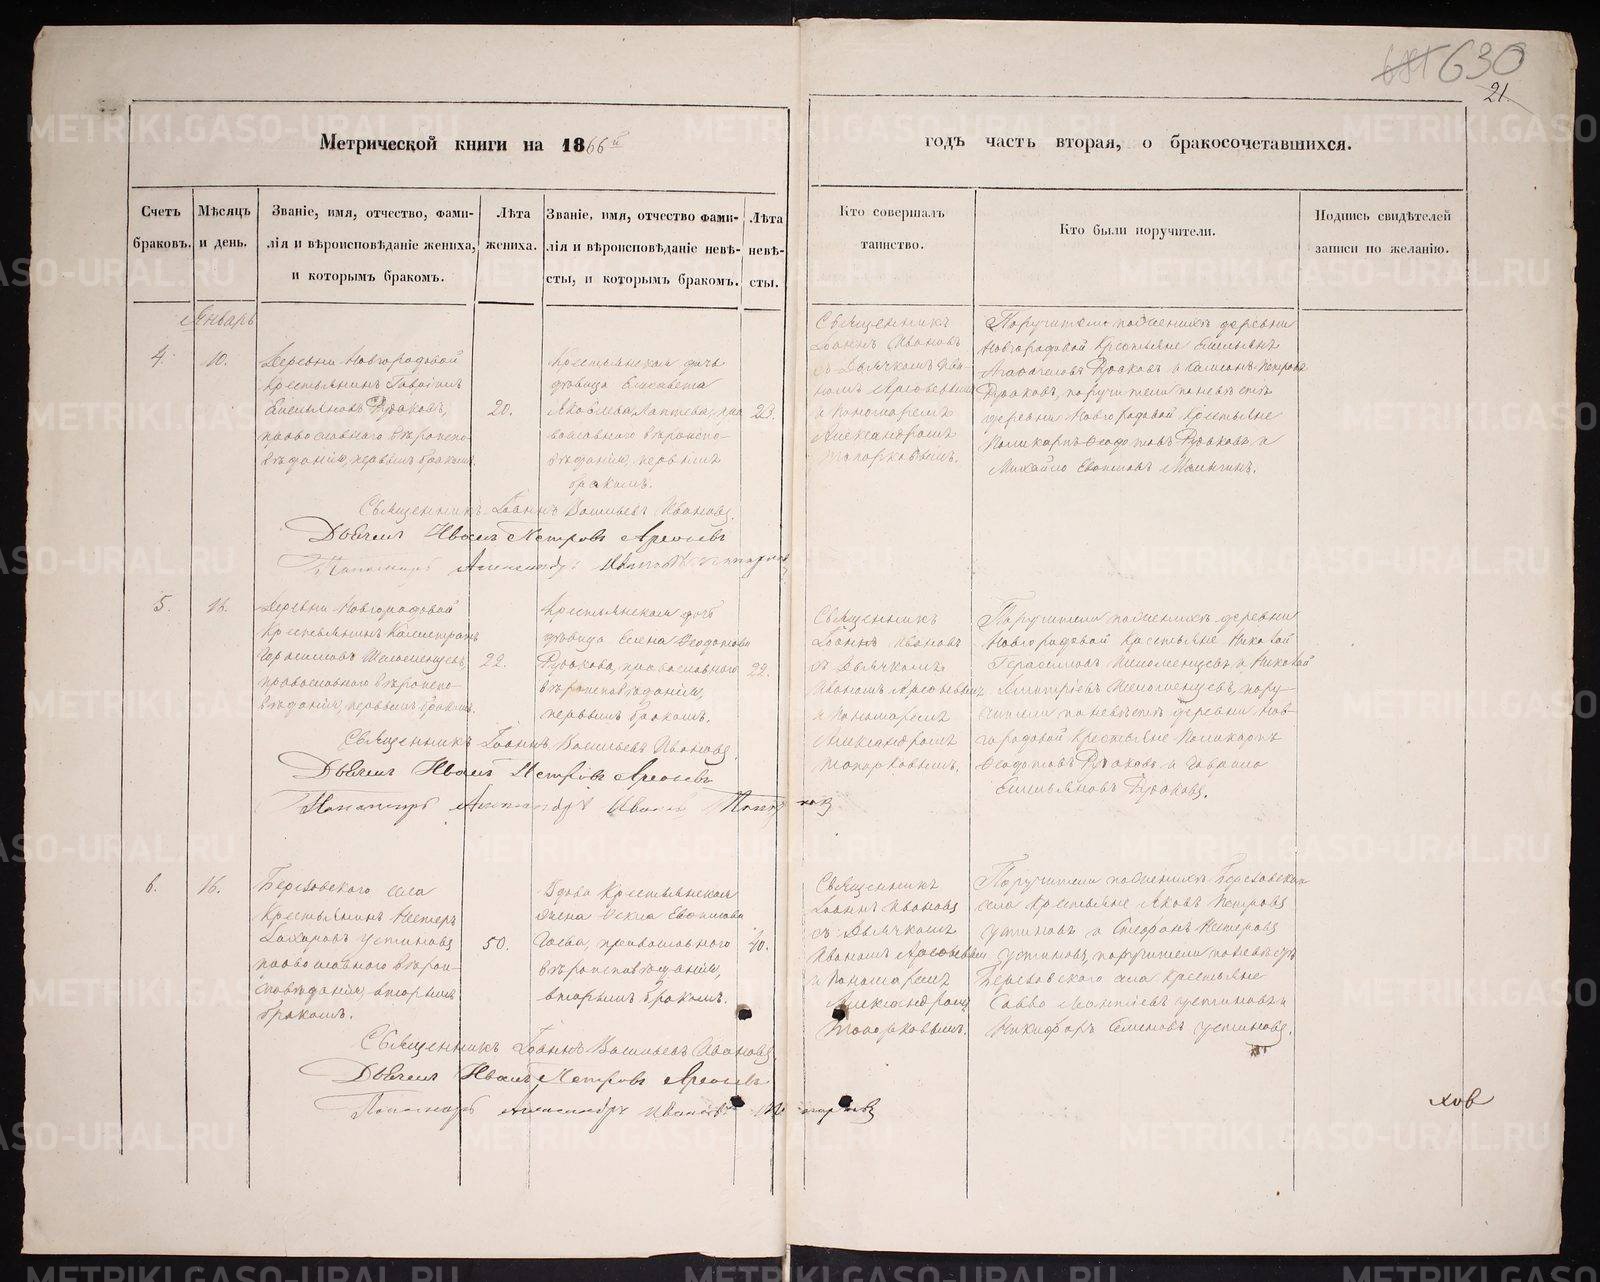 630
21.
Метрической книги на 1866й
годъ часть вторая, о бракосочетавшихся.
Счетъ браковъ.
Мѣсяцъ и день.
Званіе, имя, отчество, фами-
лія и вѣроисповѣданіе жениха,
и которымъ бракомъ.
Лѣта
жениха.
Званіе, имя, отчество фами-
лія и вѣроисповѣданіе невѣ-
сты, и которымъ бракомъ.
Лѣта
невѣ-
сты.
Кто совершалъ
таинство.
Кто были поручители.
Подпись свидѣтелей
записи по желанію.
Январь
4.
10.
Деревни Новгородовой
Крестьянинъ Гавріилъ
Емельяновъ Рудаковъ,
православнаго вѣроиспо-
вѣданія, первымъ бракомъ.
20.
Крестьянская дочь
дѣвица Елисавета
Яковлева Лаптева, пра
вославнаго вѣроиспо-
вѣданія, первымъ
бракомъ.
23.
Священникъ
Іоаннъ Ивановъ
съ Дьячкомъ Ива
номъ
и Пономаремъ
Александромъ
Топорковымъ.
Поручители по женихѣ деревни
Новгородовой Крестьяне Емельянъ
Рудаковъ и Самсонъ Петровъ
Рудаковъ, поручители по невѣстѣ
деревни Новгородовой Крестьяне
Поликарпъ Ѳедотовъ Рудаковъ и
Михайло
Священникъ Іоаннъ Васильевъ Ивановъ.
Дьячекъ Иванъ Петровъ
Пономарь Александръ Ивановъ
5.
16.
Деревни Новгородовой
Крестьянинъ Калистратъ
Герасимовъ Шеломенцевъ,
православнаго вѣроиспо-
вѣданія, первымъ бракомъ.
22.
Крестьянская дочь
дѣвица Елена Ѳедотова
Рудакова, православнаго
вѣроисповѣданія,
первымъ бракомъ.
22.
Священникъ
Іоаннъ Ивановъ
съ Дьячкомъ
Иваномъ
и Пономаремъ
Александромъ
Топорковымъ.
Поручители по женихѣ деревни
Новгородовой Крестьяне Николай
Герасимовъ Шеломенцевъ и Николай
Дмитріевъ Шеломенцевъ, пору-
чители по невѣстѣ деревни Нов-
городовой Крестьяне Поликарпъ
Ѳедотовъ Рудаковъ и Гаврило
Емельяновъ Рудаковъ.
Священникъ Іоаннъ Васильевъ Ивановъ
Дьячекъ Иванъ Петровъ
Пономарь Александръ Ивановъ
6.
16.
Березовского села
Крестьянинъ Нестеръ
Захаровъ Устиновъ
православнаго вѣрои-
сповѣданія, вторымъ
бракомъ.
50.
Вдова Крестьянская
жена
православнаго
вѣроисповѣданія,
вторымъ бракомъ.
40.
Священникъ
Іоаннъ Ивановъ
съ Дьячкомъ
Иваномъ
и Пономаремъ
Александромъ
Топорковымъ.
Поручители по женихѣ Березовскаго
села Крестьяне Яковъ Петровъ
Устиновъ и Стефанъ Нестеровъ
Устиновъ, поручители по невѣстѣ
Березовскаго села Крестьяне
Савва Устиновъ и
Никифоръ Семеновъ Устиновъ.
Священникъ Іоаннъ Васильевъ Ивановъ
Дьячекъ Иванъ Петровъ
Пономарь Александръ Ивановъ
ховъ
METRIKI.GASO-URAL.RU